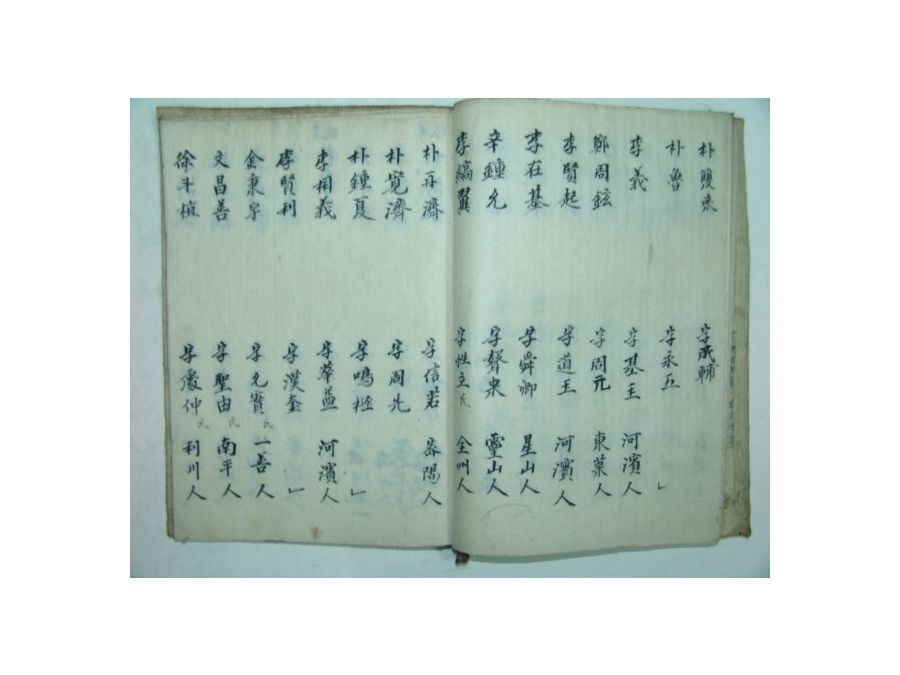 朴雙來 字成輔
朴魯 字永五 〃
李義 字基主 河濱人
鄭周鉉 字周元 東萊人
李賢起 字道王 河濱人
李在基 字舜卿 星山人
辛鍾允 字聲衆 靈山人
李縞翼 字性立 民 全州人
朴再濟 字信若 岳陽人
朴寬濟 字周先
朴鍾夏 字鳴極 〃
李相義 字華益 河濱人
李賢利 字漢奎 〃
金秉宇 字允實 民 一善人
文昌善 字聖由 民 南平人
徐斗植 字慶仲 民 利川人